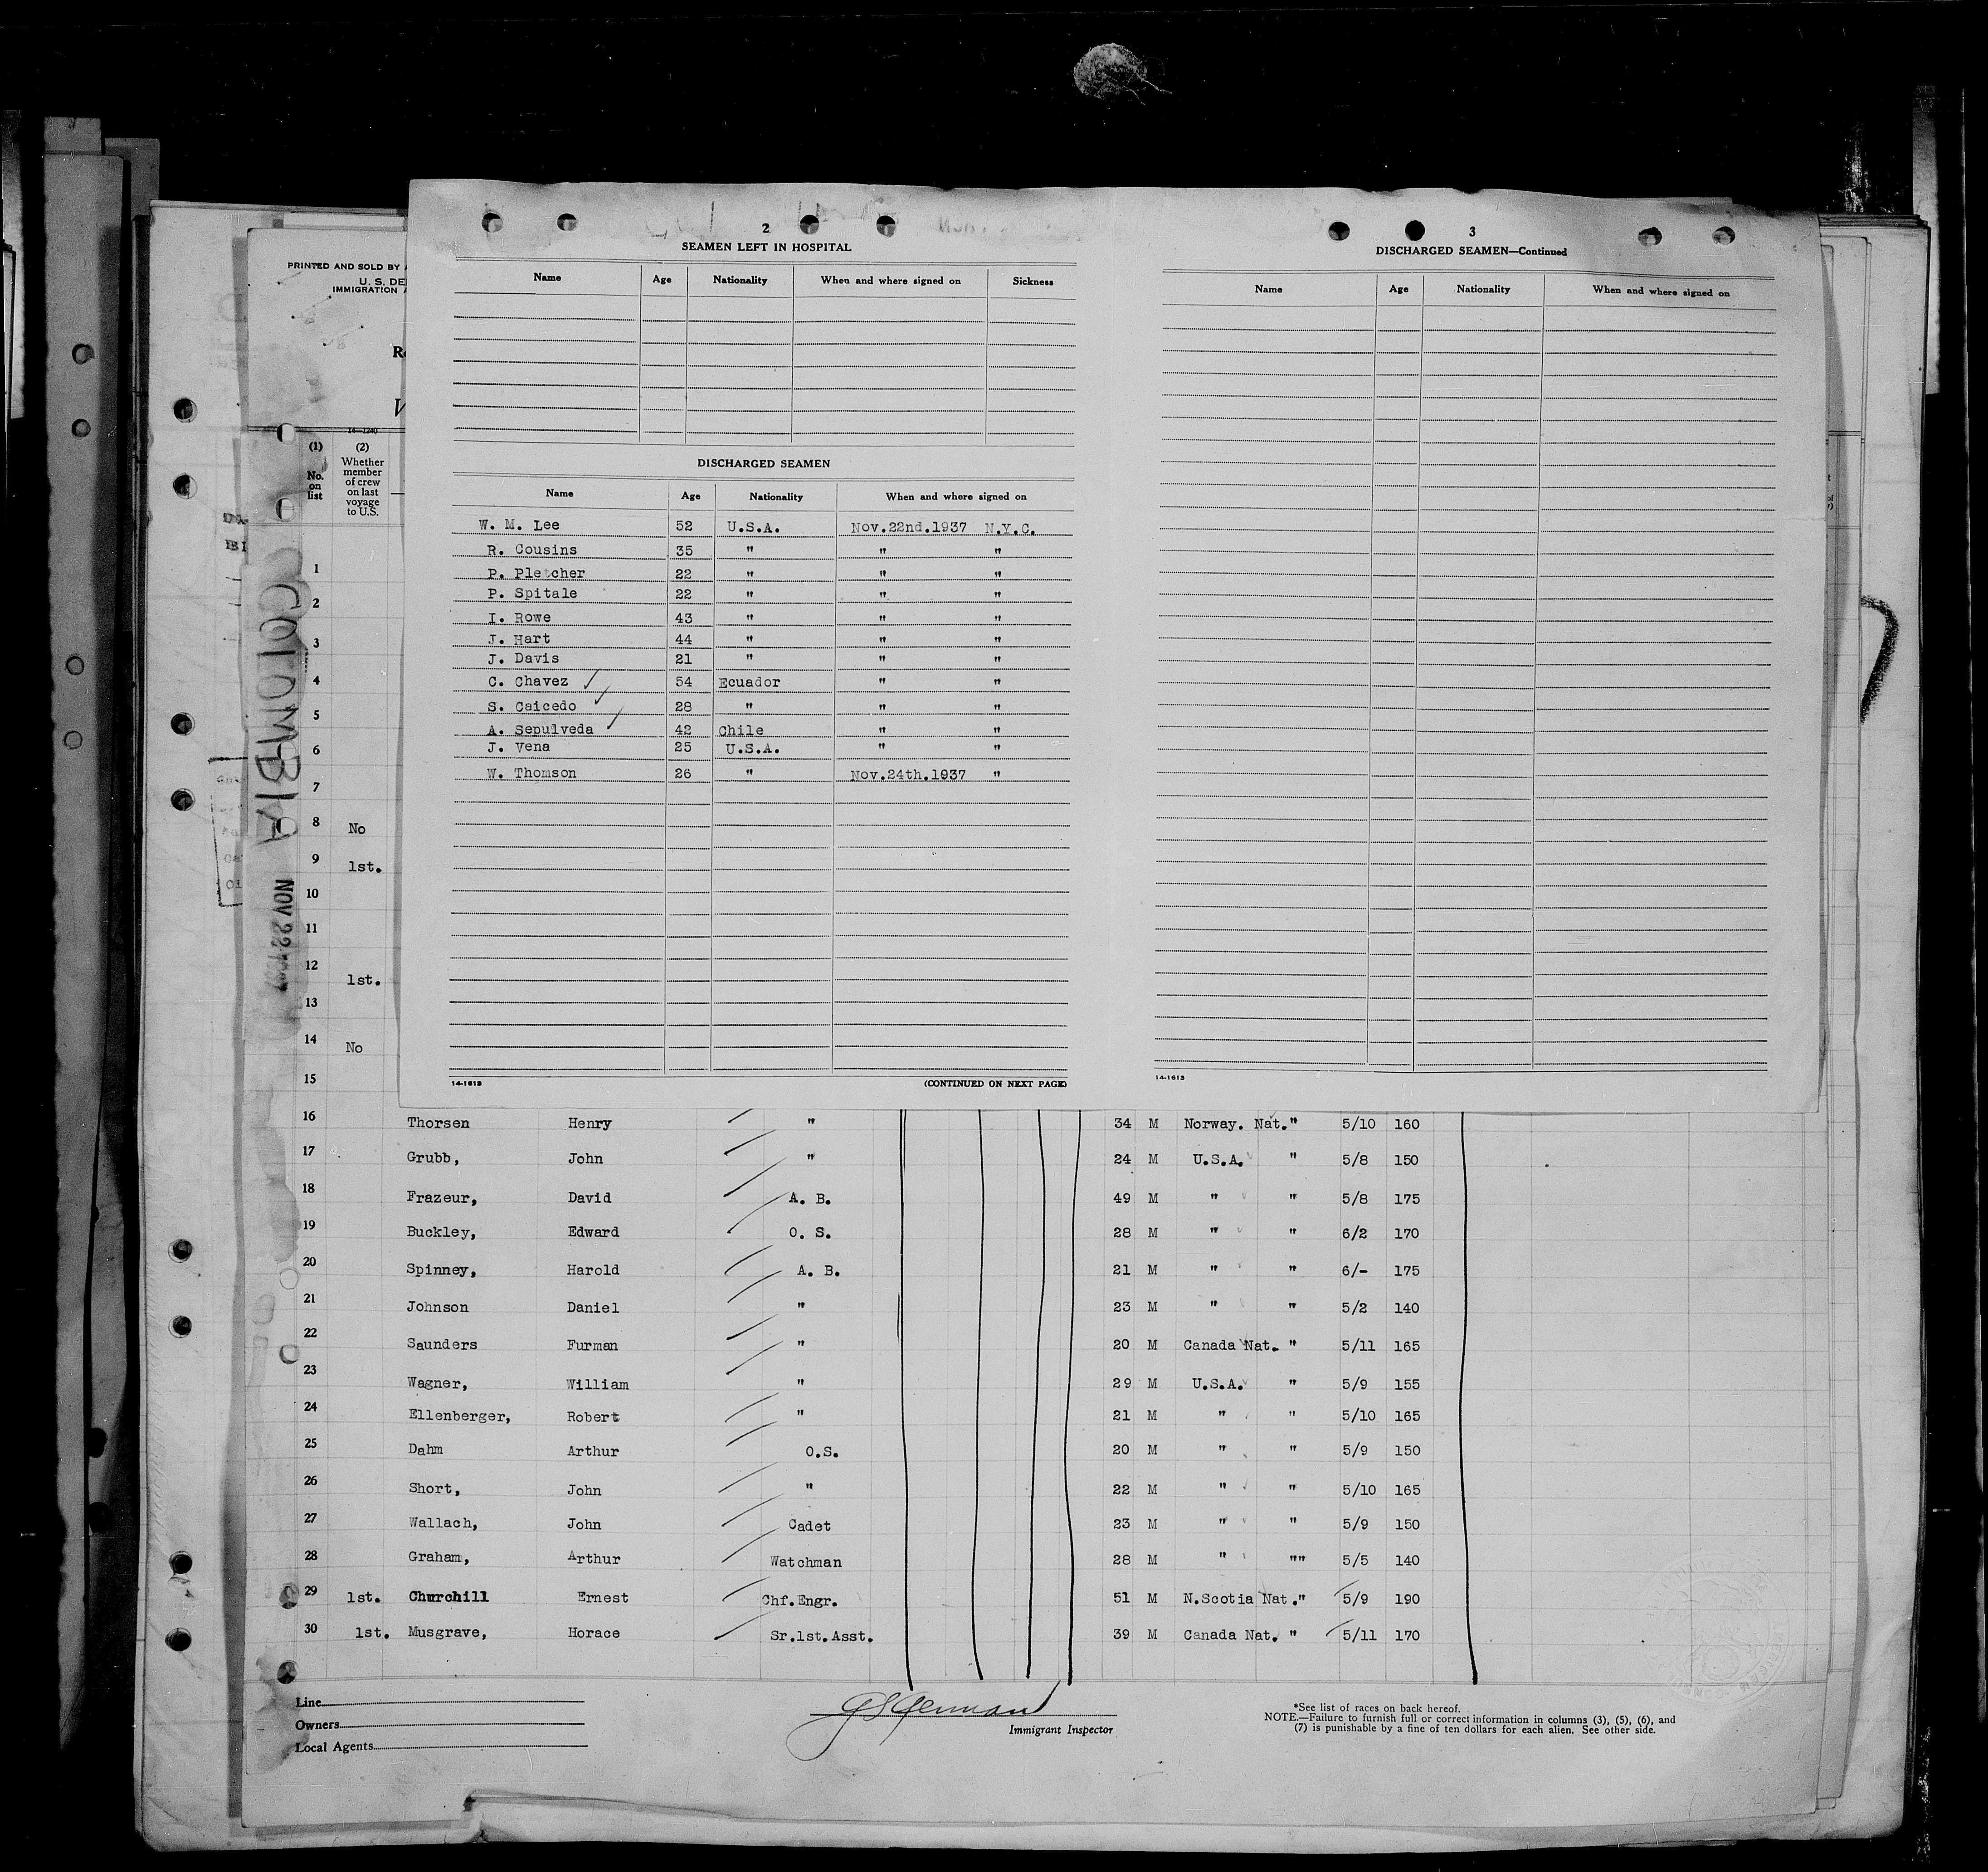 2
SEAMEN LEFT IN HOSPITAL
Name Age Nationality When and where signed on Sickness
DISCHARGED SEAMEN
Name Age Nationality When and where signed on
W. M. Lee 52 U.S.A. Nov.22nd.1937 N.Y.C.
R. Cousins 35 " " "
P. Pletcher 22 " " "
P. Spitale 22 " " "
I. Rowe 43 " " "
J. Hart 44 " " "
J. Davis 21 " " "
C. Chavez 54 Ecuador " "
S. Caicedo 28 " " "
A. Sepulveda 42 Chile " "
J. Vena 25 U.S.A. " "
W. Thomson 26 " Nov.24th.1937 "
14-1613 (CONTINUED ON NEXT PAGE)
3
DISCHARGED SEAMEN—Continued
Name Age Nationality When and where signed on
14-1613
PRINTED AND SOLD BY
U. S. DE
IMMIGRATION
14-1240
(1) (2)
No. on list
Whether member of crew on last voyage to U.S.
COLOMBIA
NOV 22 1937
1
2
3
4
5
6
7
8 No
9 1st.
10
11
12 1st.
13
14 No
15
16 Thorsen Henry " 34 M Norway. Nat." 5/10 160
17 Grubb, John " 24 M U.S.A. " 5/8 150
18 Frazeur, David A. B. 49 M " " 5/8 175
19 Buckley, Edward O. S. 28 M " " 6/2 170
20 Spinney, Harold A. B. 21 M " " 6/- 175
21 Johnson Daniel " 23 M " " 5/2 140
22 Saunders Furman " 20 M Canada Nat. " 5/11 165
23 Wagner, William " 29 M U.S.A. " 5/9 155
24 Ellenberger, Robert " 21 M " " 5/10 165
25 Dahm Arthur O.S. 20 M " " 5/9 150
26 Short, John " 22 M " " 5/10 165
27 Wallach, John Cadet 23 M " " 5/9 150
28 Graham, Arthur Watchman 28 M " "" 5/5 140
29 1st. Churchill Ernest Chf.Engr. 51 M N.Scotia Nat." 5/9 190
30 1st. Musgrave, Horace Sr.1st.Asst. 39 M Canada Nat. " 5/11 170
Line
Owners
Local Agents
Immigrant Inspector
*See list of races on back hereof.
NOTE.—Failure to furnish full or correct information in columns (3), (5), (6), and
(7) is punishable by a fine of ten dollars for each alien. See other side.